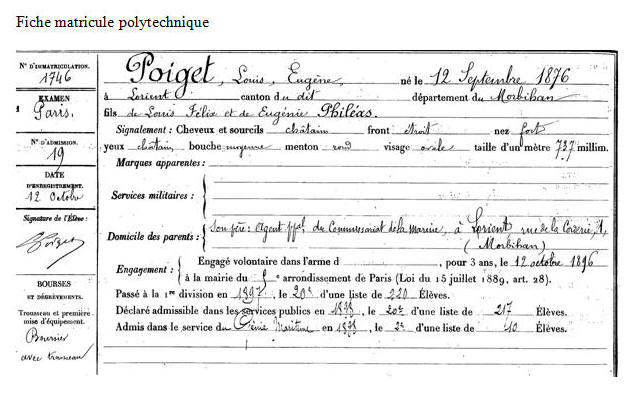 Fiche matricule polytechnique
N° D'IMMATRICULATION.
1746
EXAMEN
Paris.
N° D'ADMISSION.
19
DATE
D'ENREGISTREMENT.
12 Octobre
Signature de l'Élève :
Poiget
BOURSES
ET DÉGRÈVEMENTS.
Trousseau et première
mise d'équipement.
Boursier
avec trousseau
Poiget, Louis, Eugène, né le 12 Septembre 1876
à Lorient canton du dit département du Morbihan
fils de Louis Félix et de Eugénie Philéas.
Signalement : Cheveux et sourcils châtain front étroit nez fort
yeux châtain, bouche moyenne menton rond visage ovale taille d'un mètre 737 millim.
Marques apparentes :
Services militaires :
Domicile des parents : Son père : Agent ppal du Commissariat de la Marine, à Lorient rue de la 1,
(Morbihan)
Engagement : Engagé volontaire dans l'arme d , pour 3 ans, le 12 octobre 1896
à la mairie du 5e arrondissement de Paris (Loi du 15 juillet 1889, art. 28).
Passé à la 1re division en 1897, le 20e d'une liste de 220 Élèves.
Déclaré admissible dans les services publics en 1898, le 20e d'une liste de 217 Élèves.
Admis dans le service du Génie Maritime en 1898, le 2e d'une liste de 10 Élèves.